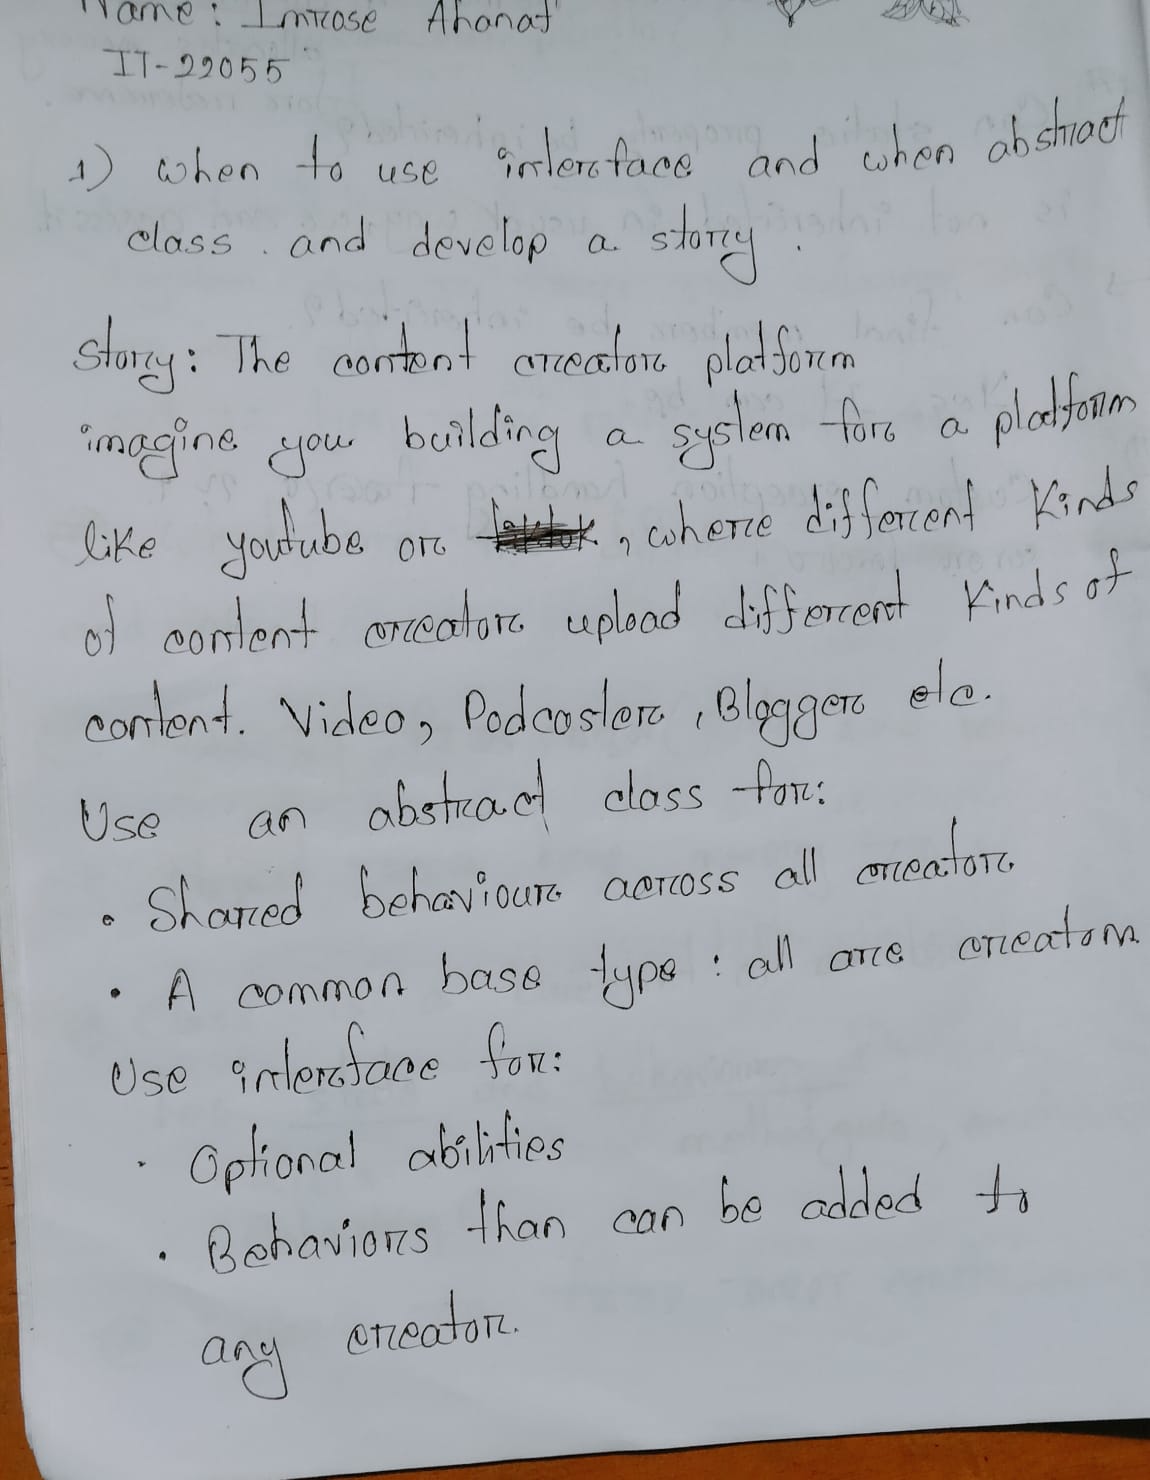 Name: Imrose Ahonaf
IT-22055
1) when to use interface and when abstract
class. and develop a story.
Story: The content creator platform
imagine you building a system for a platform
like youtube or , where different Kinds
of content creator upload different Kinds of
content. Video, Podcaster, Blogger etc.
Use an abstract class for:
• Shared behaviour across all creator
• A common base type: all are creators
Use interface for:
• Optional abilities
• Behaviors than can be added to
any creator.